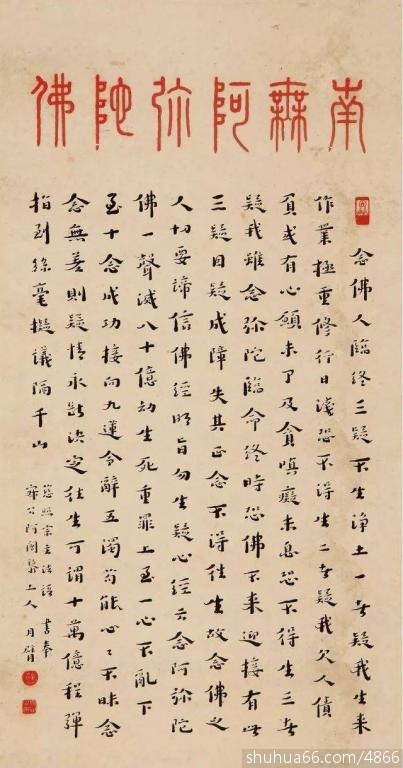 南無阿弥陀佛
念佛人臨終三疑不生淨土一者疑我生来
作業極重修行日淺恐不得生二者疑我欠人債
負或有心願未了及貪嗔癡未息恐不得生三者
疑我雖念弥陀臨命終時恐佛不来迎接有此
三疑因疑成障失其正念不得往生故念佛之
人切要諦信佛經明旨勿生疑心經云念阿弥陀
佛一聲滅八十億劫生死重罪上至一心不亂下
至十念成功接向九蓮令辭五濁苟能心〻不昧念
念無差則疑情永斷決定往生可謂十萬億程彈
指到絲毫擬議隔千山
慈照宗主法語 書奉
寂公阿闍黎上人 月臂
shuhua66.com/4866